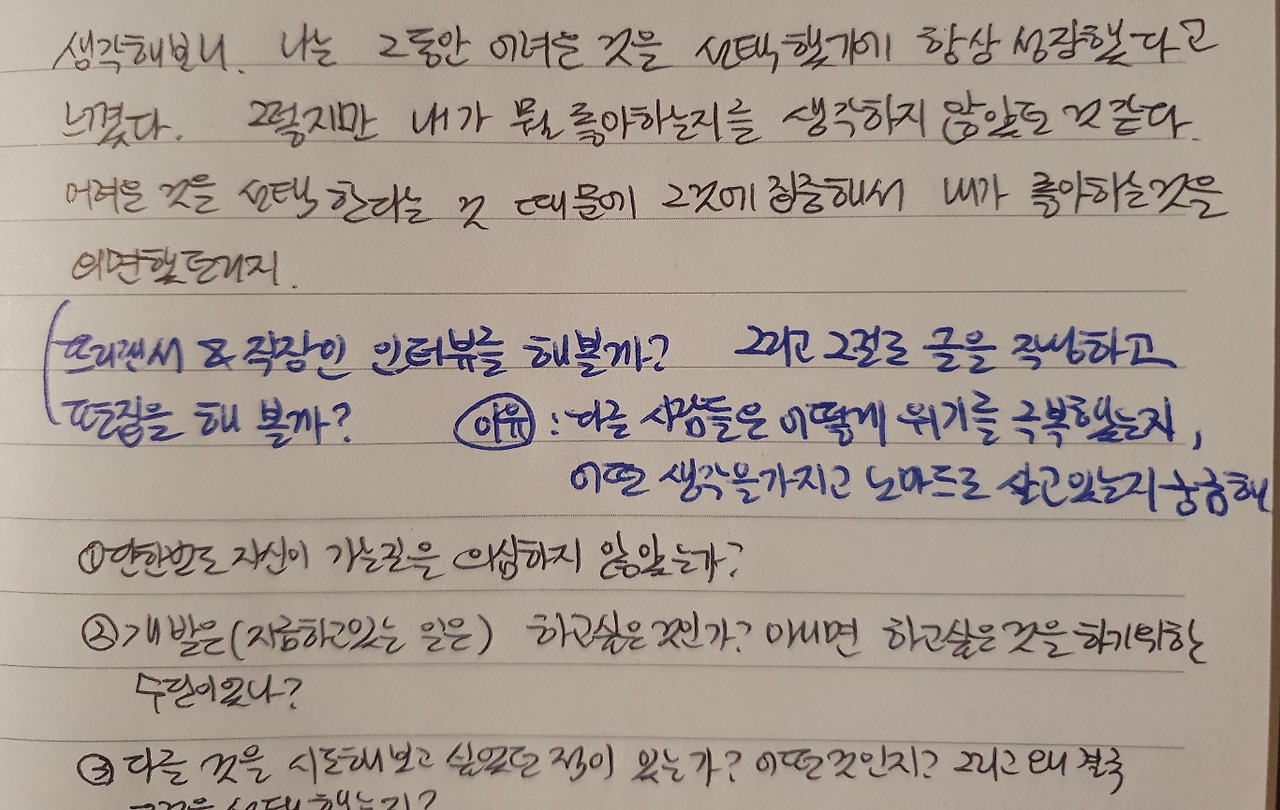 생각해보니. 나는 그동안 어려운 것을 선택했기에 항상 성장했다고
느꼈다. 그렇지만 내가 뭘 좋아하는지를 생각하지 않았도 것 같다.
어려운 것을 선택한다는 것 때문에 그것에 집중해서 내가 좋아하는것을
외면했던거지.
프리랜서 & 직장인 인터뷰를 해볼까? 그리고 그걸로 글을 작성하고
편집을 해 볼까? 이유 : 다른 사람들은 어떻게 위기를 극복했는지,
어떤 생각을가지고 노마드로 살고있는지 궁금해
① 단한번도 자신이 가는길은 의심하지 않았는가?
② 개발은(지금하고있는 일은) 하고싶은것인가? 아니면 하고싶은것을 하기위한
수단이었나?
③ 다른 것을 시도해보고 싶었던 적이 있는가? 어떤것인지? 그리고 왜 결국
그것을 선택했는지?